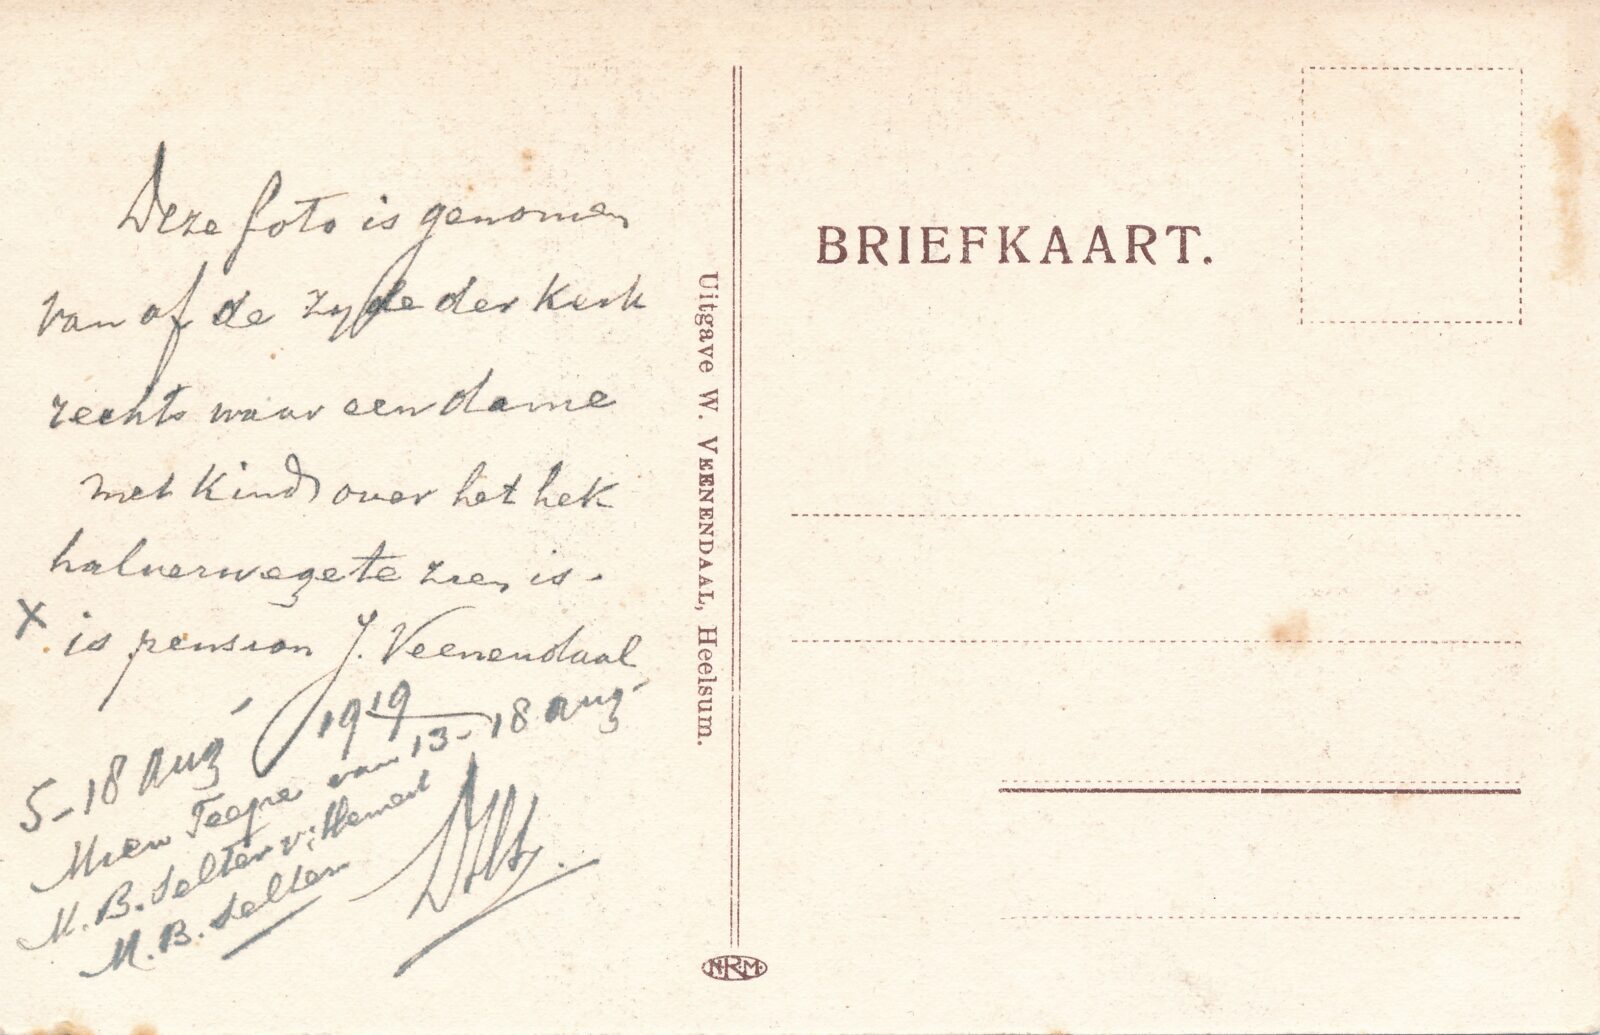 Deze foto is genomen
van af de zyde der Kerk
rechts waar een dame
met Kind over het hek
halverwege te zien is.
X is pension J. Veenendaal
5-18 Aug 1919
Mien van 13-18 Aug
M. B. Selter v:
M. B. Selter
BRIEFKAART.
Uitgave W. VEENENDAAL, Heelsum.
N.R.M.